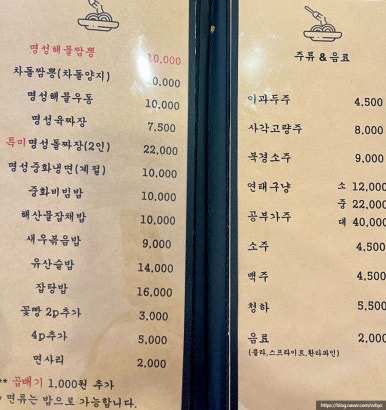 명성해물짬뽕 10,000
차돌짬뽕(차돌양지) 0,000
명성해물우동 10,000
명성육짜장 7,500
특미명성돌짜장(2인) 22,000
명성중화냉면(계절) 10,000
중화비빔밥 10,000
해산물잡채밥 10,000
새우볶음밥 9,000
유산슬밥 14,000
잡탕밥 16,000
꽃빵 2p추가 3,000
4p추가 5,000
면사리 2,000
** 곱빼기 1,000원 추가
면류는 밥으로 가능합니다.
주류 & 음료
이과두주 4,500
사각고량주 8,000
북경소주 9,000
연태구냥 소 12,000
중 22,000
공부가주 대 40,000
소주 4,500
맥주 4,500
청하 5,500
음료 2,000
(콜라,스프라이트,환타파인)
https://blog.naver.com/